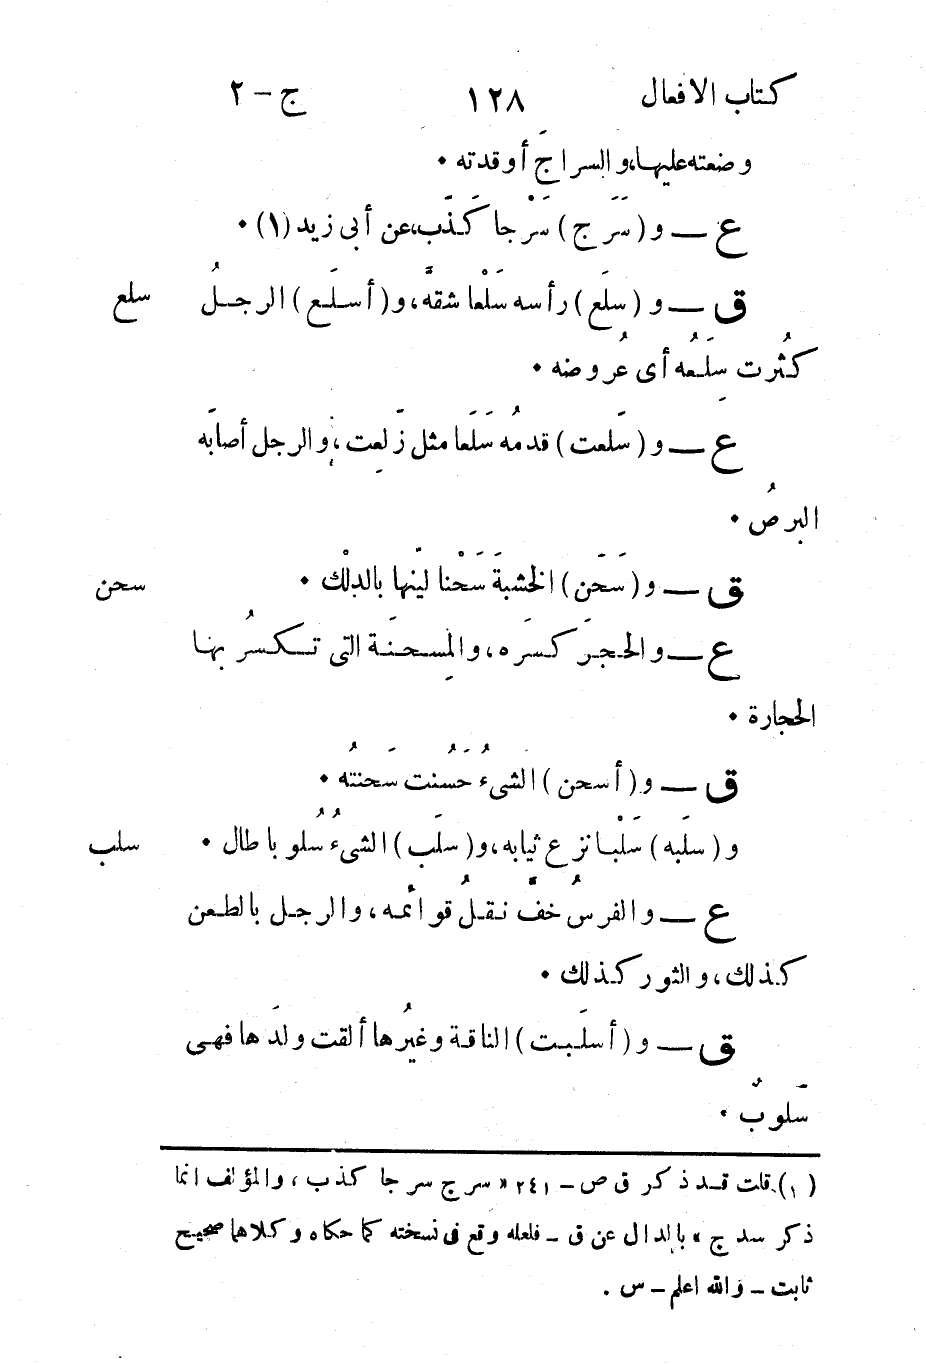 كتاب الافعال ١٢٨ ج – ٢
وضعته عليها، والسراجَ أوقدته ٠
ع — و (سَرَج) سَرْجا كَذَب، عن أبى زيد (١) ٠
ق — و (سلَع) رأسه سَلْعا شقه، و (أسلَع) الرجلُ سلع
كثُرت سِلَعُه أى عُروضه ٠
ع — و (سَلعت) قدمُه سَلَعا مثل زَلِعت، والرجل أصابَه
البرصُ ٠
ق — و (سَحَن) الخشبةَ سَحْنا ليّنها بالدلْك ٠ سحن
ع — والحجرَ كسَره، والمِسحنَة التى تكسرُ بها
الحجارة ٠
ق — و (أسحن) الشىءُ حَسُنت سَحنتُه ٠
و (سلَبه) سَلْبا نزع ثيابه، و (سلَب) الشىءُ سُلوبا طال ٠ سلب
ع — والفرسُ خفَّ نقلُ قوائمه، والرجل بالطعن
كذلك، والثور كذلك ٠
ق — و (أسلَبت) الناقة وغيرُها ألقت ولدَها فهى
سَلوبٌ ٠
(١) قلت قد ذكر ق ص – ٢٤١ «سرج سرجا كذب، والمؤلف انما
ذكر سدج» بالدال عن ق – فلعله وقع فى نسخته كما حكاه وكلاهما صحيح
ثابت – والله اعلم – س .